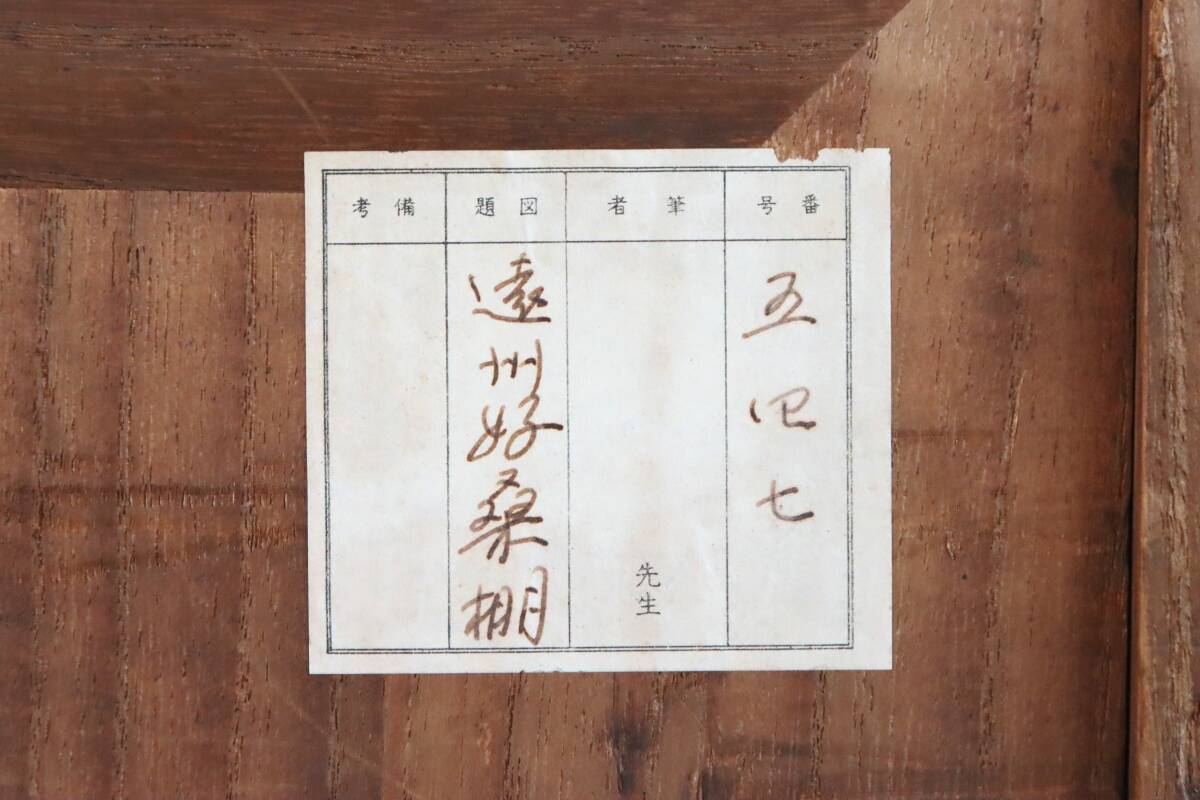 番号
五四七
筆者
先生
図題
遠州好桑棚
備考